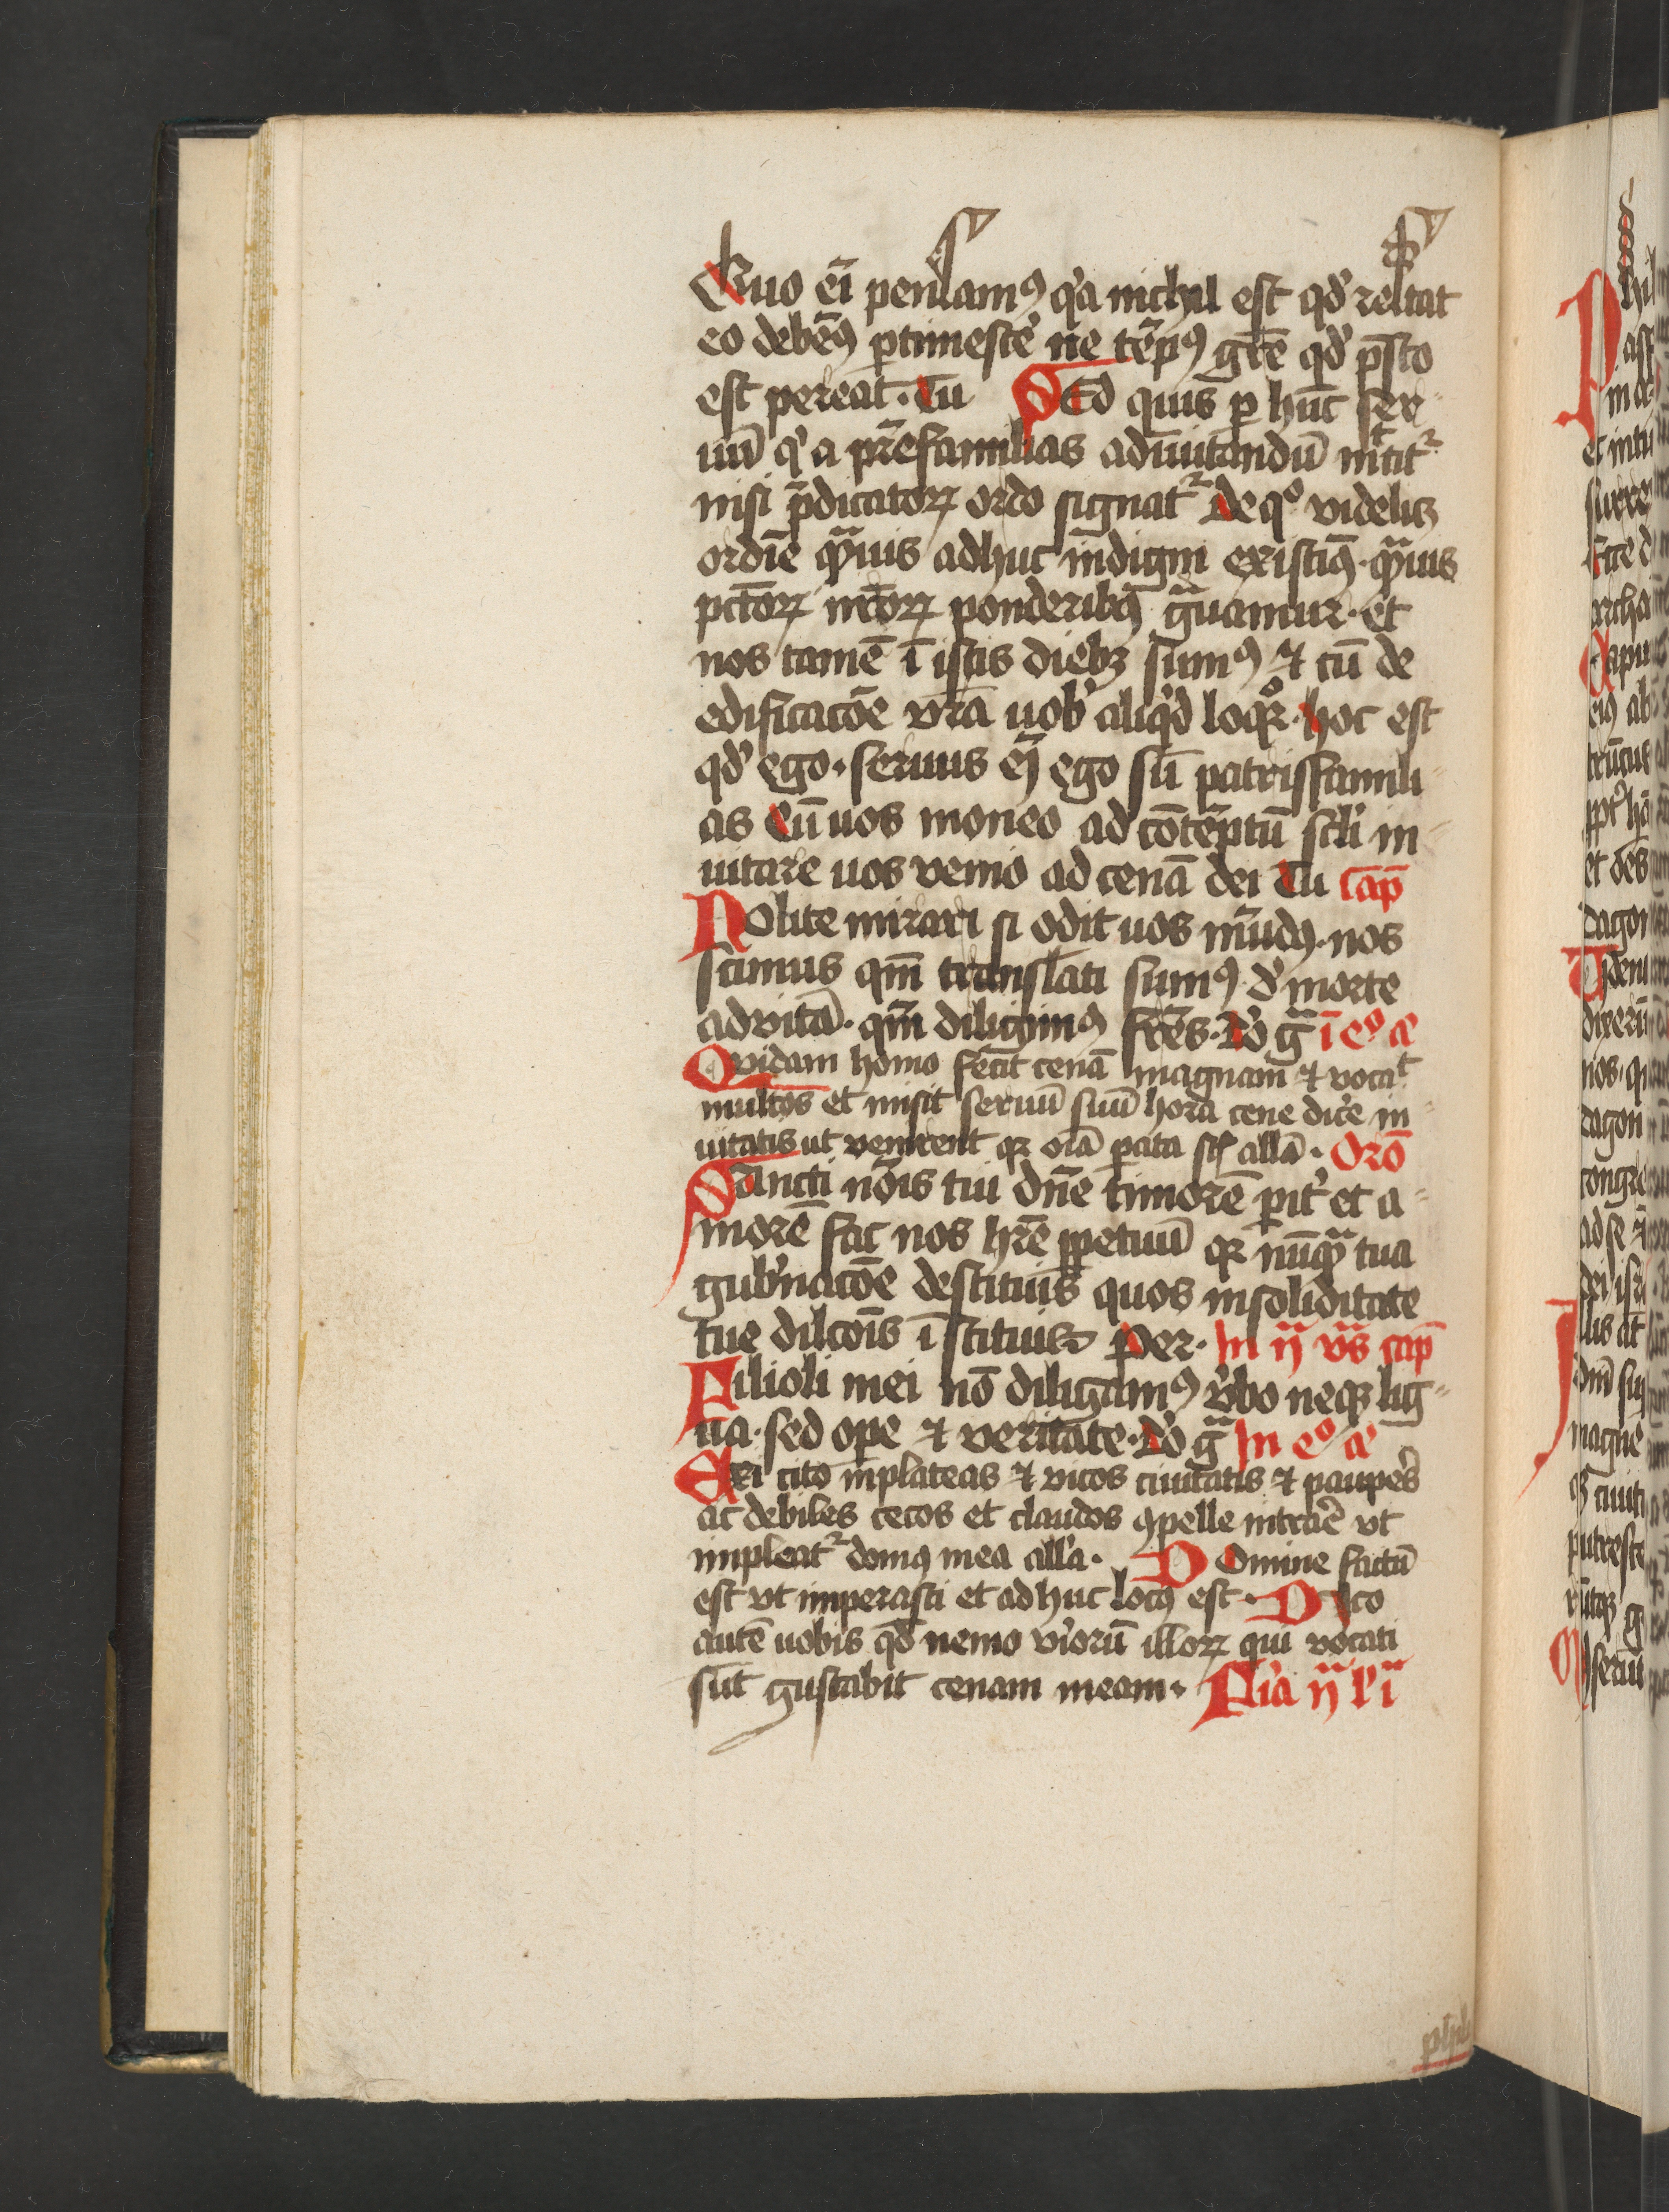 Quo em̄ pensamꝰ qͥa nichil est qd̓ restat
eo debemꝰ ꝑtimesce᷑ ne temꝑꝰ gͬe qd̓ p̄sto
est pereat. Tu Sed quis ꝑ hūc ser
uū qͥ a pr̄efamilias ad īuitandū mittit᷑
nisi p̄dicatoꝝ ordo signat᷑ De qͦ videlicꝫ
ordīe qͣuis adhuc indigni existimꝰ. qͣuis
pctōꝝ nr̄oꝝ ponderibꝰ gͣuamur. et
nos tamē ī istis diebꝫ sumꝰ ⁊ cū de
edificacōe vr̄a uob̓ aliqͥd loqͦr. hoc est
qd̓ ego. seruus em̄ ego sū patrisfamili
as Cū uos moneo ad cōtemptū scl̓i in
uitare uos venio ad cenā dei Tu Cap̄
Nolite mirari si odit uos mūdꝰ. nos
scimus qm̄ translati sumꝰ d̓ morte
ad vitā. qm̄ diligimꝰ fr̄es. Dō gͣ ī eͦ a
Quidam homo fecit cenā magnam ⁊ vocat
multos et misit seruū suū hora cene dice᷑ in
uitatis ut venirent qꝛ oīa ꝑata st̄ allā. Orō
Sancti nōis tui dn̄e timorē ꝑit̓ et a
morē fac nos hr̄e ꝑpetuū qꝛ nūqͣ tua
gub̓nacōe destituis quos in soliditate
tue dilcōis īstituis Per. In ij vͣs cap̄
Filioli mei nō diligamꝰ v̓bo neqꝫ lig
ua. sed oꝑe ⁊ veritate. Dō gͣ In eͦ a
Exi cito in plateas ⁊ vicos ciuitatis ⁊ pauꝑes
ac debiles cecos et claudos ꝯpelle intrare᷑ vt
impleat᷑ domꝰ mea all̓a. Domine factū
est vt imperasti et adhuc locꝰ est. Dico
autē uobis qd̓ nemo viroꝝ illoꝝ qui vocati
sūt gustabit cenam meam. Fͥia ij lͥ i